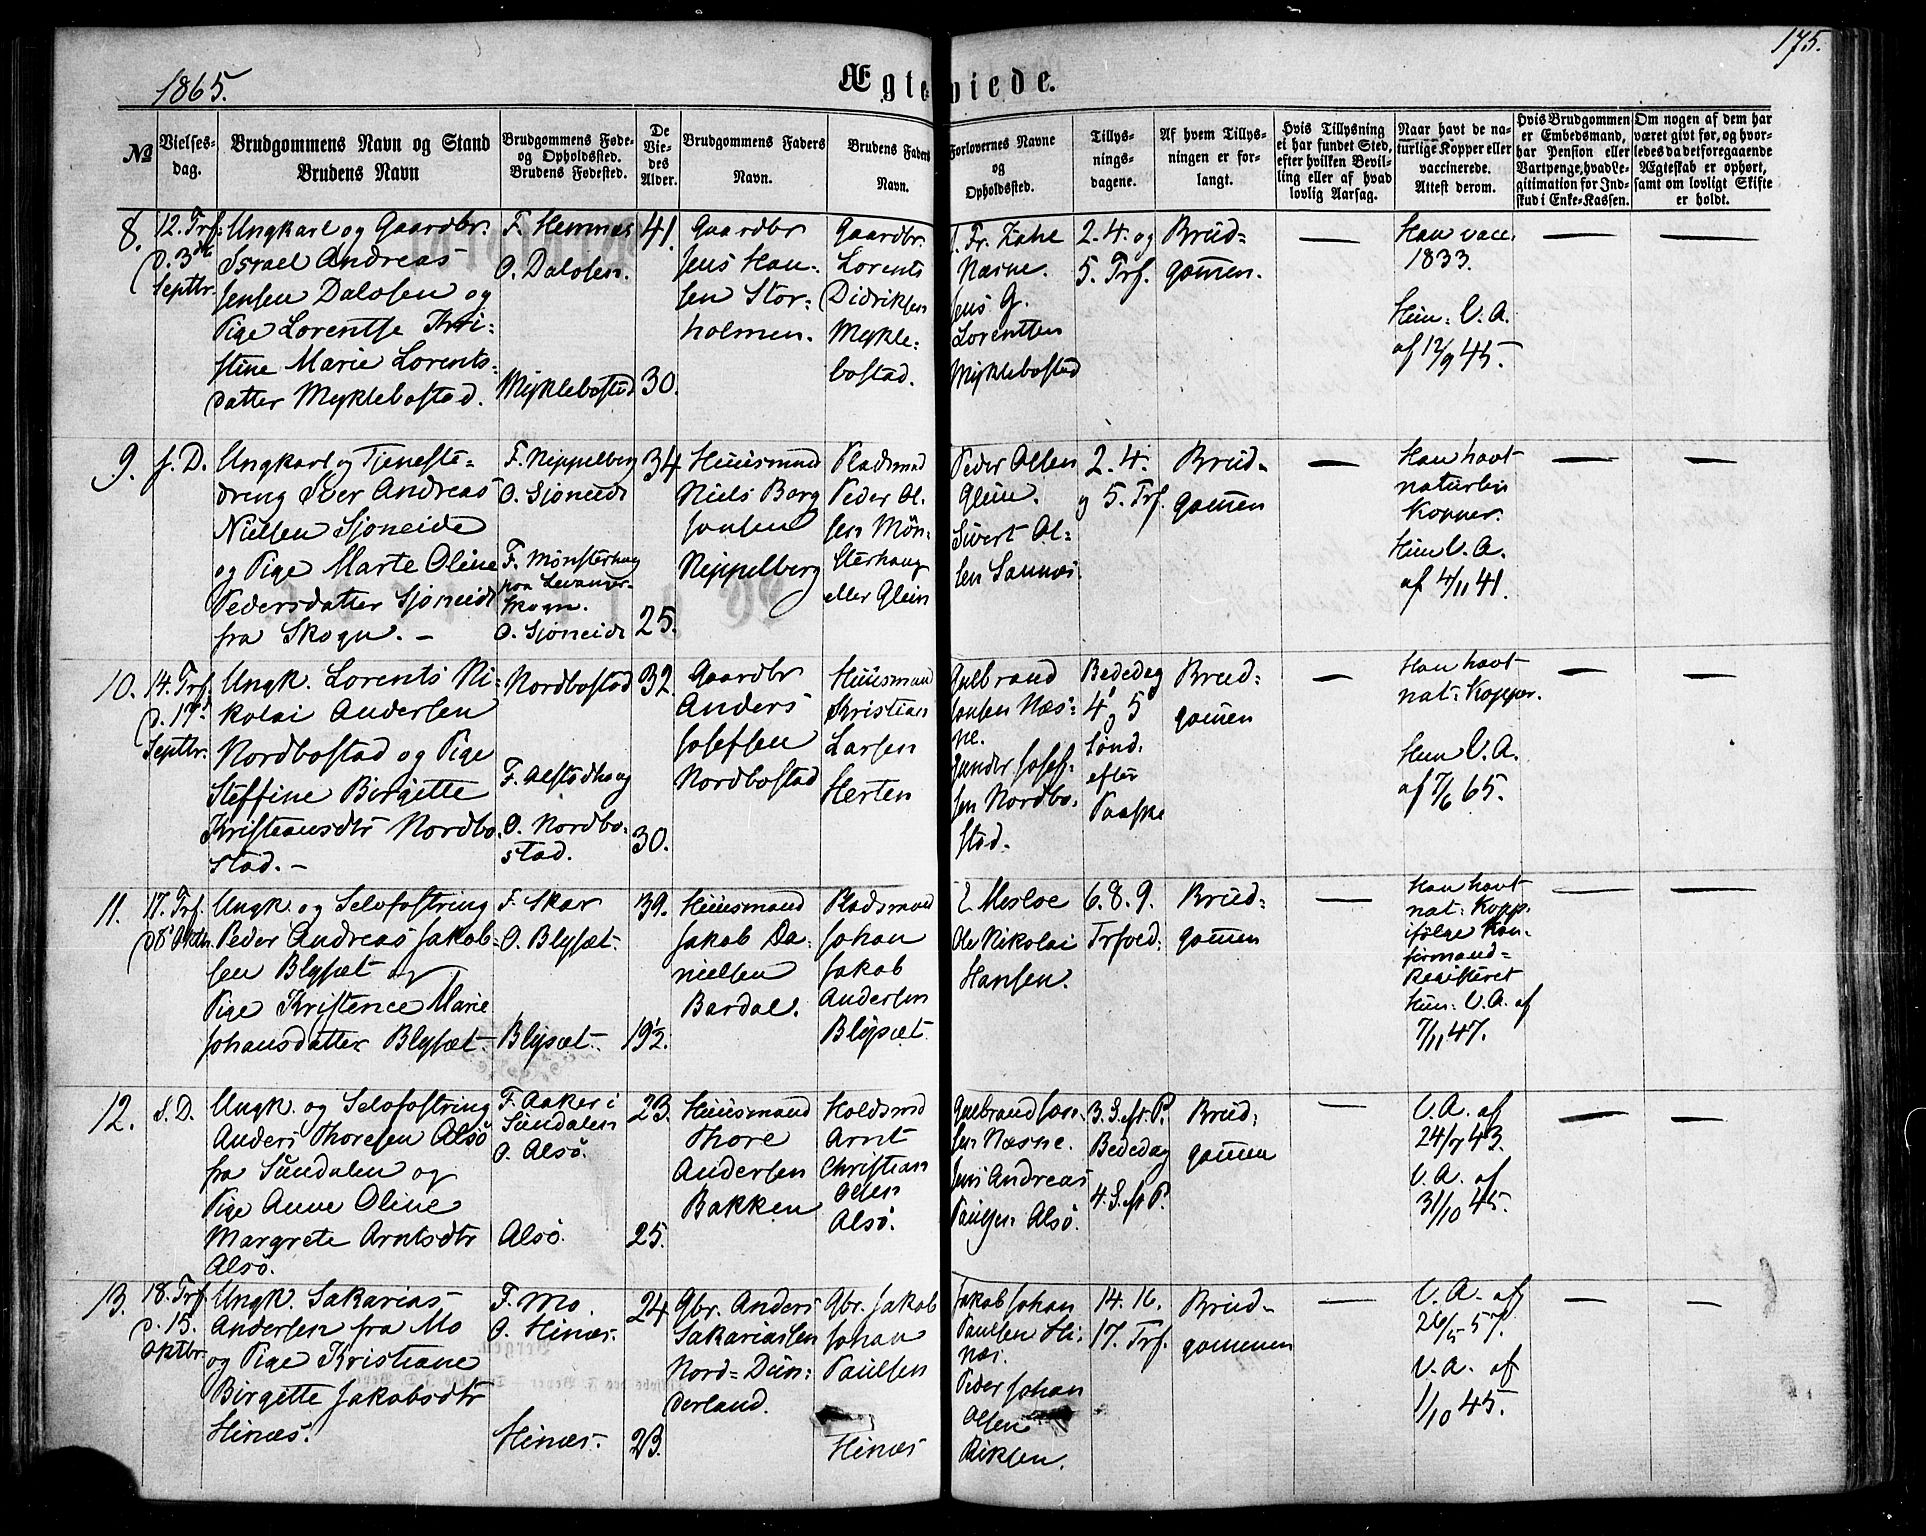 175.
1865.
Ægteviede.
No
Vielses-
dag.
Brudgommens Navn og Stand
Brudens Navn
Brudgommens Føde-
og Opholdssted.
Brudens Fødested.
De
Vie-
des
Alder.
Brudgommens Faders
Navn.
Brudens Faders
Navn.
Forlovernes Navne
og
Opholdssted.
Tillys-
nings-
dagene.
Af hvem Tillys-
ningen er for-
langt.
Hvis Tillysning
ei har fundet Sted,
efter hvilken Bevil-
ling eller af hvad
lovlig Aarsag.
Naar havt de na-
turlige Kopper eller
vaccinerede.
Attest derom.
Hvis Brudgommen
er Embedsmand,
har Pension eller
Vartpenge, hvad Le-
gitimation for Ind-
skud i Enke-Kassen.
Om nogen af dem har
været givt før, og hvor-
ledes da det foregaaende
Ægteskab er ophørt,
samt om lovligt Skifte
er holdt.
8.
12. Trf.
d. 3die
Septbr.
Ungkarl og Gaardbr.
Israel Andreas
Jensen Dalosen og
Pige Lorentse Kri-
stine Marie Lorents-
datter Myklebostad.
F. Hemnæs
O. Dalosen.
Myklebostad
41.
30.
Gaardbr
Jens Han-
sen Stor-
holmen.
Gaardbr.
Lorents
Didriksen
Mykle-
bostad.
Fr. Zahl
Næsne.
Jens G.
Lorentsen
Myklebostad
2. 4. og
5. Trf.
Brud-
gomen.
Han vacc.
1833.
Hun: V. A.
af 12/9 45.
9.
s. D.
Ungkarl og Tjeneste-
dreng Iver Andreas
Nielsen Sjoneide
og Pige Marte Oline
Pedersdatter Sjoneide
fra Skogn. -
F. Nippelberg
O. Sjoneide
F. Mønsterhaug
paa Levanger-
Skogn.
O. Sjoneide
34
25.
Huusmand
Niels Borg
Jonsen
Nippelberg
Pladsmd
Peder Ol-
sen Møn-
sterhaug
eller Glein
Peder Olsen
Glein.
Sivert Ol-
sen Sannæs.
2. 4.
og 5. Trf.
Brud-
gomen
Han havt
naturlis
Kopper.
Hun V. A.
af 4/11 41.
10.
14. Trf.
d. 17d
Septbr.
Ungk. Lorents Ni-
kolai Andersen
Nordbostad og Pige
Steffine Birgitte
Kristiansdtr Nordbo-
stad. -
Nordbostad
F. Alstadhaug
O. Nordbo-
stad.
32.
30.
Gaardbr
Anders
Josefsen
Nordbostad
Huusmand
Kristian
Larsen
Herten
Gulbrand
Jonsen Næs-
ne.
Gunder Josef-
sen Nordbo-
stad.
Bededag
4 og 5
Sönd.
efter
Paaske
Brud-
gomen
Han havt
nat: Kopper.
Hun V. A.
af 7/6 65.
11.
17. Trf.
d 8 Oktbr.
Ungk. og Selvfostring
Peder Andreas Jakob-
sen Blysæt og
Pige Kristence Marie
Johansdatter Blysæt
F. Skar
O. Blysæt.
Blysæt.
39.
19½.
Huusmand
Jakob Da-
nielsen
Bardal.
Pladsmand
Johan
Jakob
Andersen
Blysæt
Ole Nikolai
Hansen.
6. 8. 9.
Trfoed:
Brud-
gomen
Han havt
nat: Kopp.
ifölge Kon-
firmand-
Registeret
Hun: V. A. af
7/11 47.
12.
s. D.
Ungk. og Selvfostring
Anders Thoresen Alsö
fra Sundalen og
Pige Anne Oline
Margrete Arntsdtr
Alsö.
F. Aaker i
Sundalen
O. Alsö.
Alsö.
23.
25.
Huusmand
Thore
Andersen
Bakken
Holdsmd
Arnt
Christian
Olsen
Alsö.
Gulbrand Jon-
sen Næsne.
Jens Andreas
Paulsen Alsö.
3. S. eft. P.
Bededag
4. S. eft P.
Brud-
gomen
V. A. af
24/7 43.
V. A. af
31/10 45.
13.
18. Trf.
d. 15.
Oktbr.
Ungk. Sakarias
Andersen fra Mo
og Pige Kristiane
Birgette Jakobsdtr
Hinæs.
F. Mo.
O. Hinæs.
Hinæs.
24
23.
Gbr. Anders
Sakariassen
Nord-Dun-
derland.
Gbr. Jakob
Johan
Paulsen
Hinæs
Jakob Johan
Paulsen Hi-
næs.
Peder Johan
Olsen
14. 16.
17. Trf.
Brud-
gommen
V. A. af
26/5 57.
V. A. af
1/10 45.